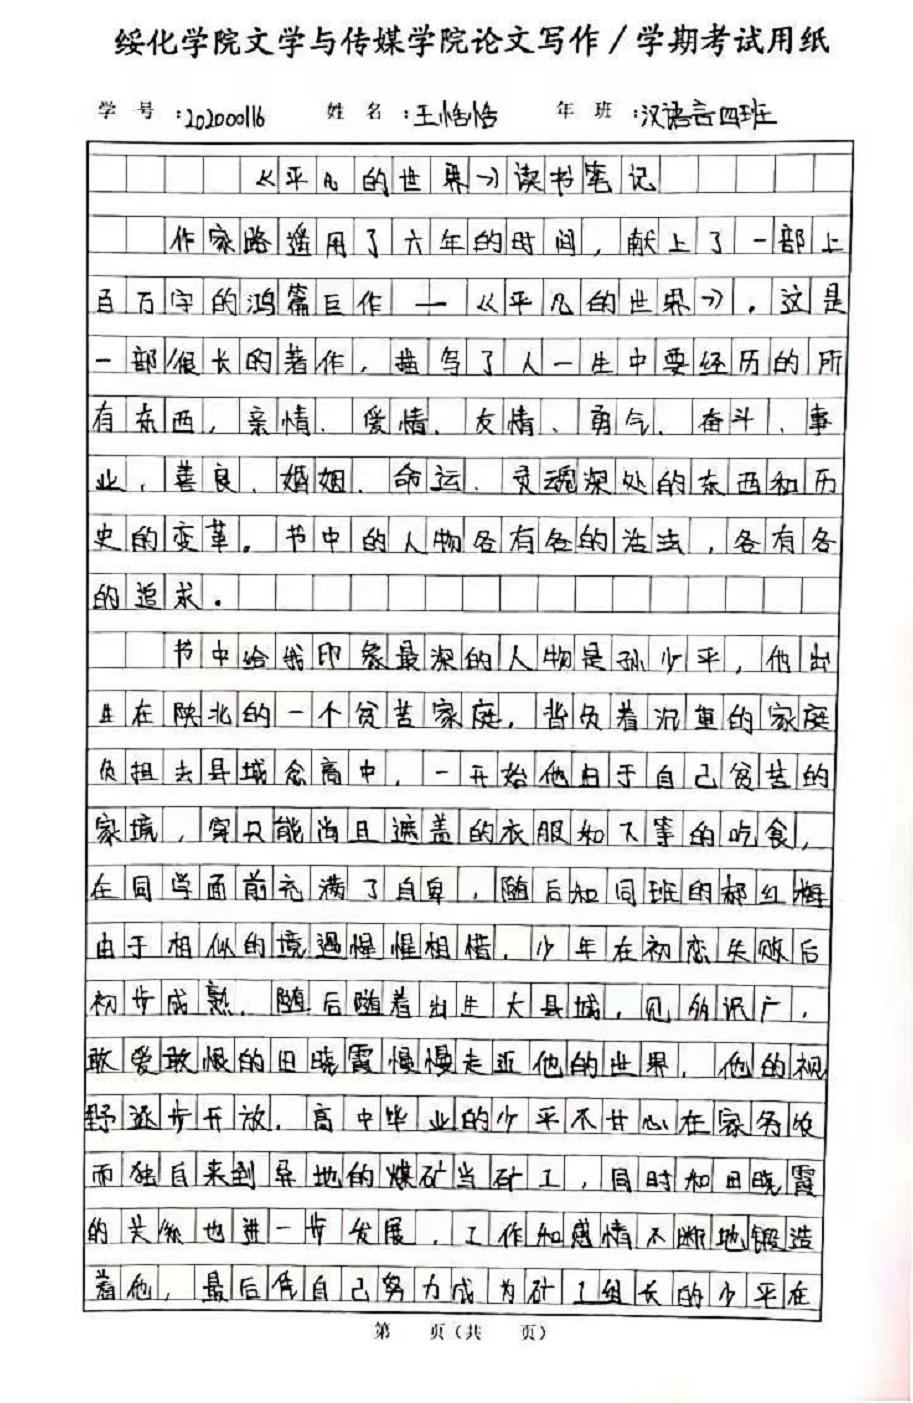 绥化学院文学与传媒学院论文写作/学期考试用纸
学号:202000116 姓名:王恬恬 年班:汉语言四班
《平凡的世界》读书笔记
作家路遥用了六年的时间，献上了一部上
百万字的鸿篇巨作—《平凡的世界》。这是
一部很长的著作，描写了人一生中要经历的所
有东西，亲情、爱情、友情、勇气、奋斗、事
业、善良、婚姻、命运、灵魂深处的东西和历
史的变革。书中的人物各有各的活法，各有各
的追求。
书中给我印象最深的人物是孙少平，他出
生在陕北的一个贫苦家庭，背负着沉重的家庭
负担去县城念高中，一开始他由于自己贫苦的
家境，穿只能尚且遮盖的衣服和下等的吃食，
在同学面前充满了自卑，随后和同班的郝红梅
由于相似的境遇惺惺相惜，少年在初恋失败后
初步成熟。随后随着出生大县城，见多识广，
敢爱敢恨的田晓霞慢慢走近他的世界，他的视
野逐步开放。高中毕业的少平不甘心在家务农
而独自来到异地的煤矿当矿工，同时和田晓霞
的关系也进一步发展，工作和感情不断地锻造
着他，最后凭自己努力成为矿工组长的少平在
第 页(共 页)